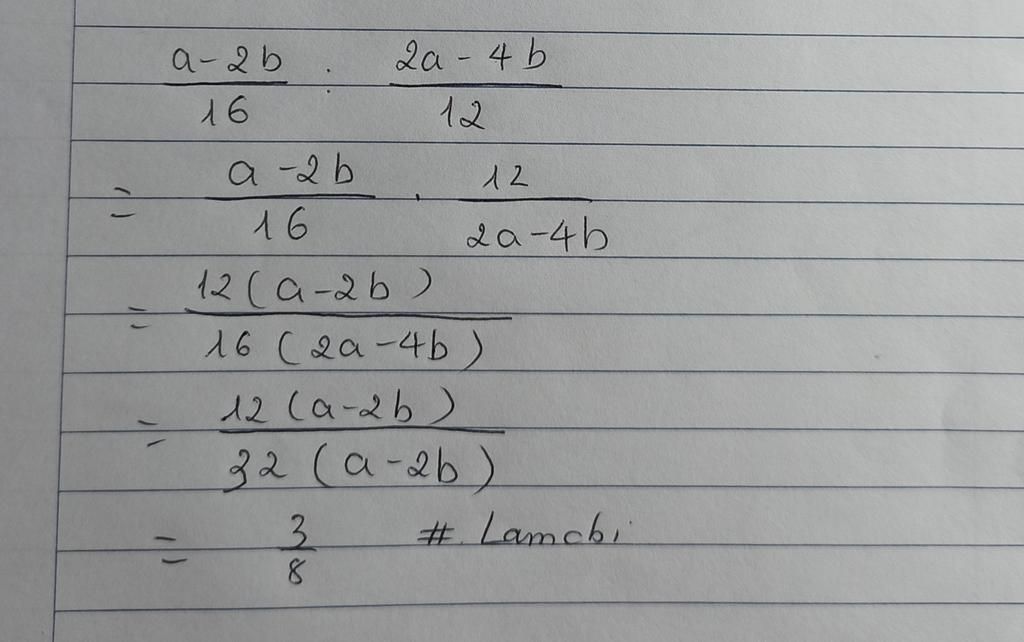 a-2b/16 : 2a-4b/12
= a-2b/16 . 12/2a-4b
= 12(a-2b)/16(2a-4b)
= 12(a-2b)/32(a-2b)
= 3/8 # Lamchi